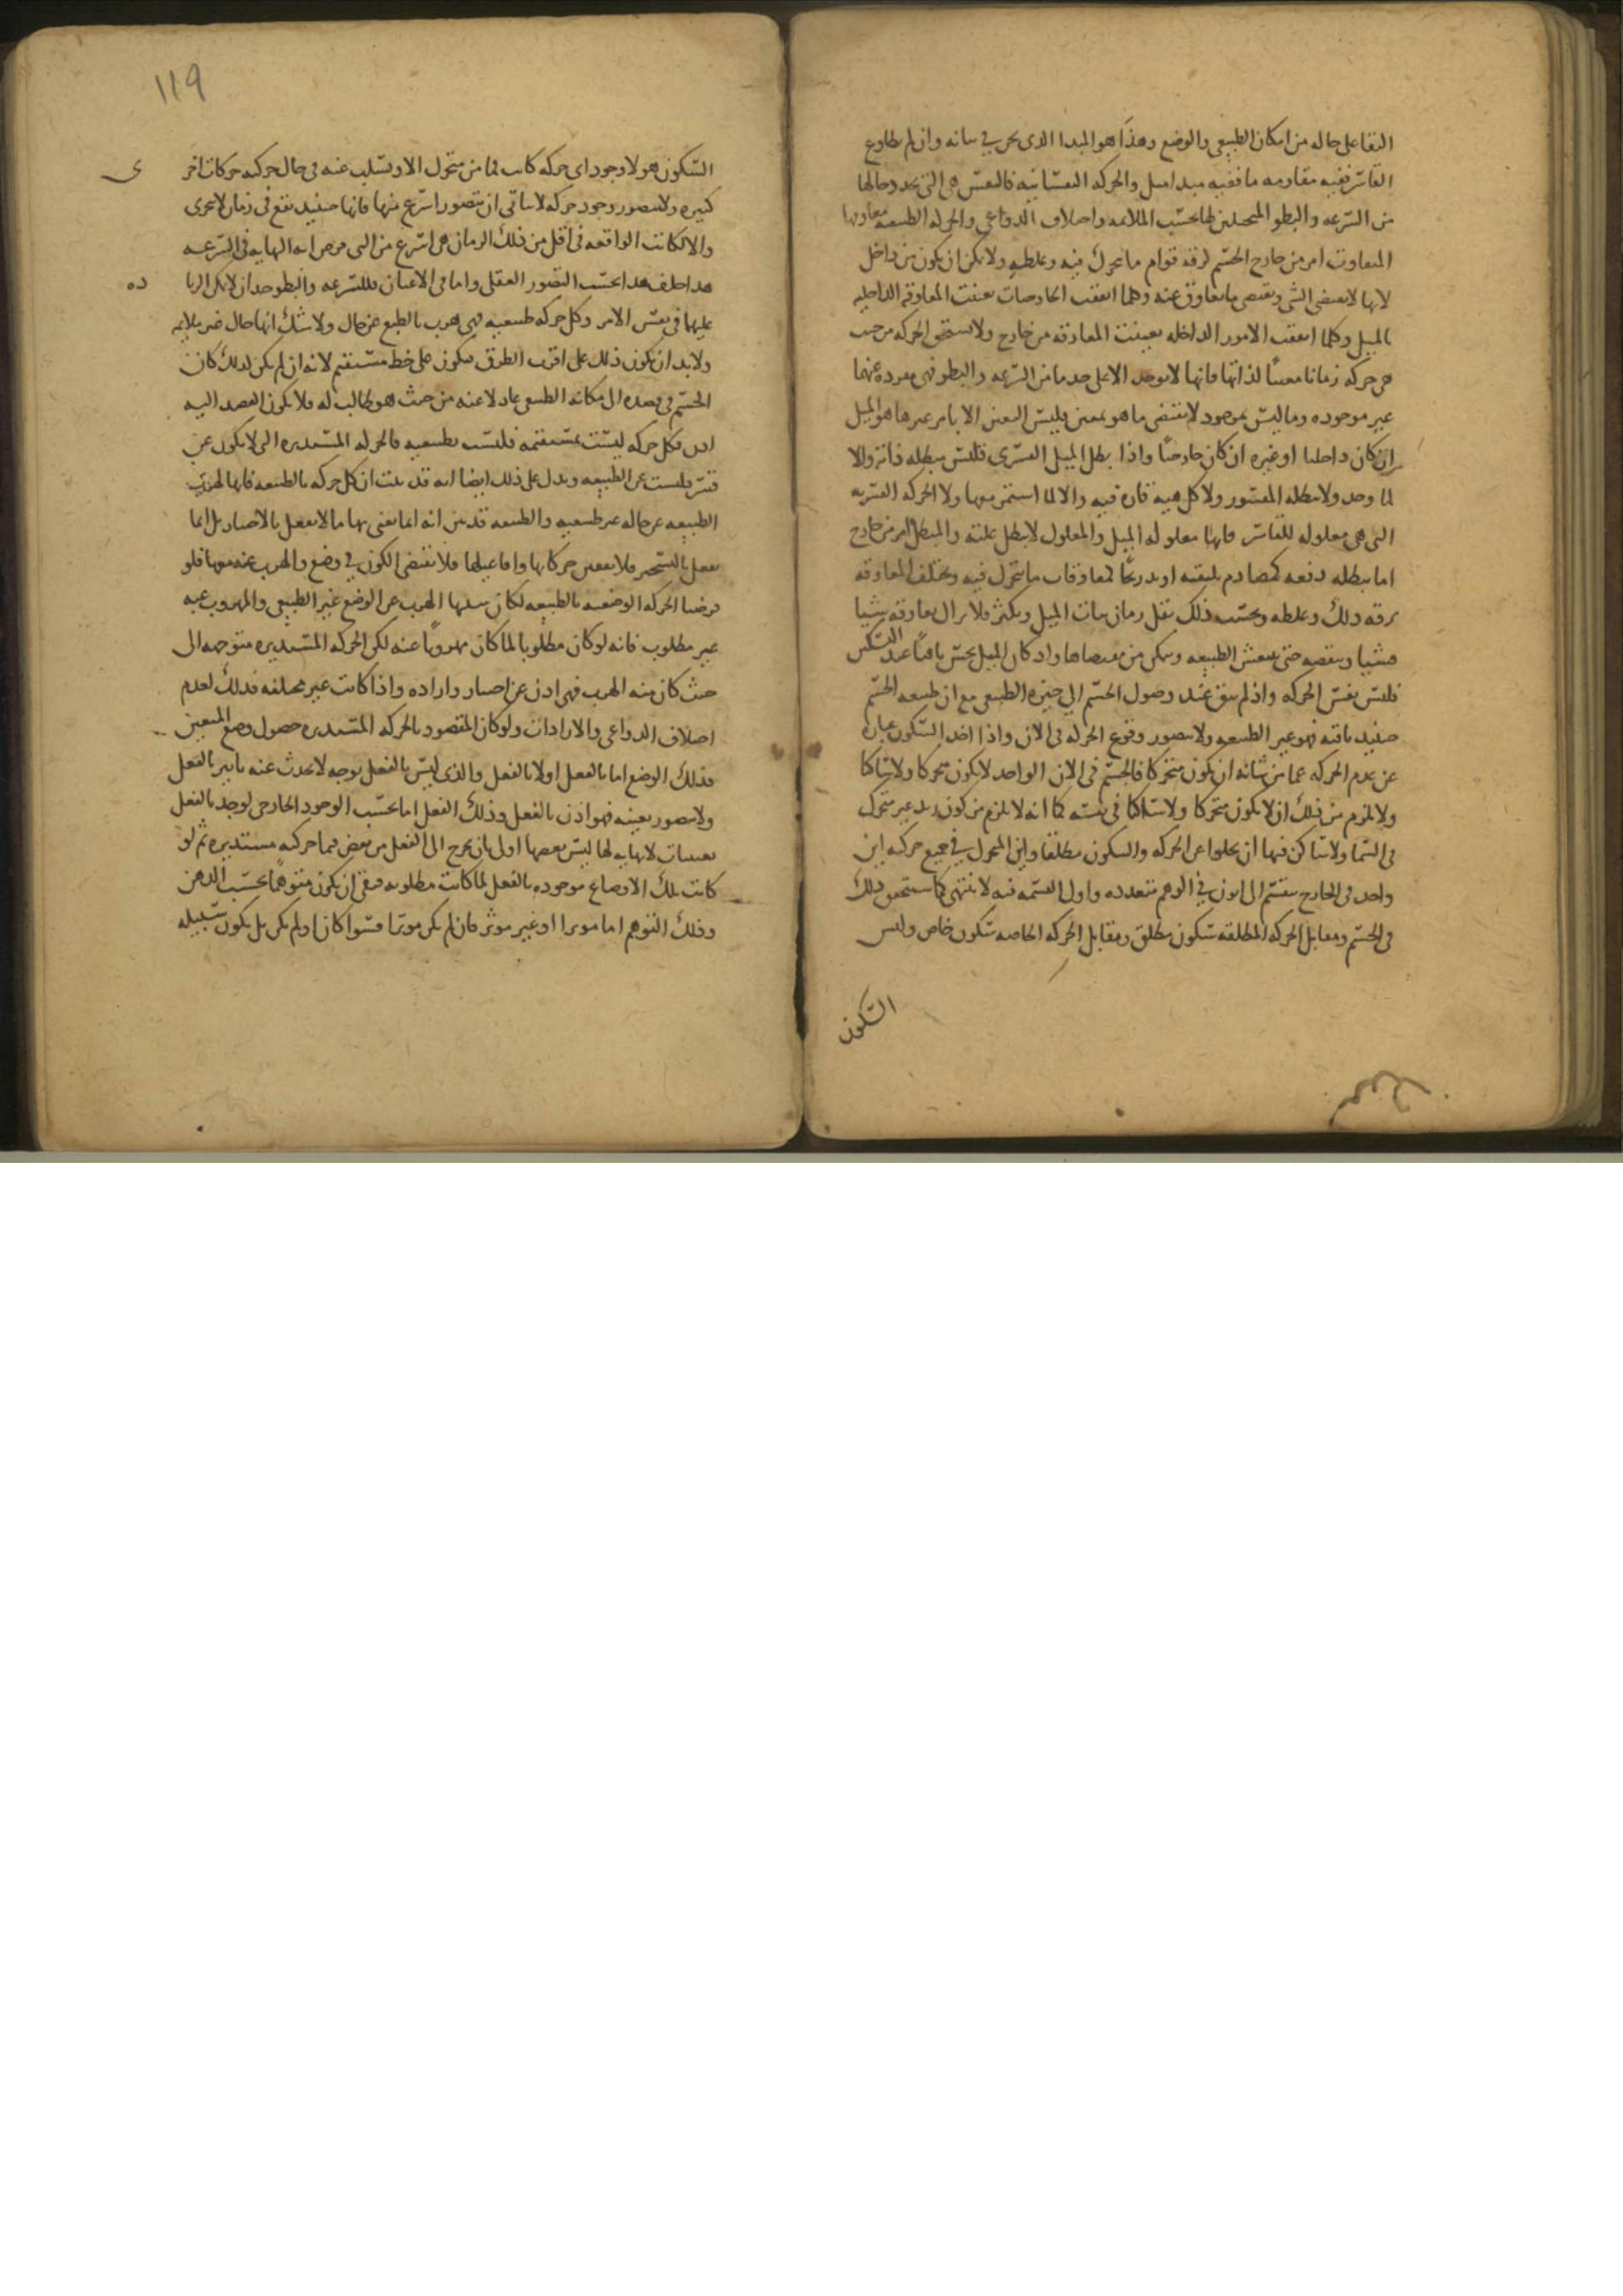 البقا على حاله من المكان الطبيعى والوضع وهذا هو المبدا الذى نحن فى بيانه وان لم يطاوع
القاسر ففيه مقاومه ما ففيه مبدا ميل والحركه النفسانيه فالنفس هى التى تحدد حالها
من السرعه والبطو المتخيلين لها بحسب الملايمه واختلاف الدواعى والحركه الطبيعيه معاوقها
المعاوق امر من خارج الجسم لرقه قوام ما يتحرك فيه وغلظه ولا يمكن ان يكون من داخل
لانها لا تقتضى الشى وتقتضى ما يعاوق عنه ومهما اتفقت الخارجيات تعينت المعاوقه الداخليه
بالميل وكلما اتفقت الامور الداخله تعينت المعاوقه من خارج ولا تستحق الحركه من حيث
هى حركه زمانا معينا لذاتها فانها لا توجد الا على حد ما من السرعه والبطو فهى مفرده عنهما
غير موجوده وما ليس بموجود لا يقتضى ما هو معين فليس التعين الا بامر غيرها هو الميل
ان كان داخليا او غيره ان كان خارجيا واذا بطل الميل القسرى فليس مبطله ذاته والا
لما وجد ولا مبطله المقسور ولا كل هيه قارن فيه والا لما استمر معها ولا الحركه القسريه
التى هى معلوله للقاسر فانها معلوله الميل والمعلول لا يبطل علته والمبطل امر من خارج
اما يبطله دفعه كمصادم يلقيه او تدريجا كمعاوقات ما يتحرك فيه وتختلف المعاوقه
برقه ذلك وغلظه وبحسب ذلك يقل زمان ثبات الميل ويكثر فلا يزال يعاوقه شيا
فشيا وينقصه حتى تنتعش الطبيعه وتتمكن من مقتضاها واذ كان الميل يحس باقيا عند التسكين
فليس نفس الحركه واذ لم يبق عند وصول الجسم الى حيزه الطبيعى مع ان طبيعه الجسم
حينيد باقيه فهو غير الطبيعه ولا يتصور وقوع الحركه فى الان واذا اخذ السكون عباره
عن عدم الحركه عما من شانه ان يكون متحركا فالجسم فى الان الواحد لا يكون متحركا ولا ساكنا
ولا يلزم من ذلك ان لا يكون متحركا ولا ساكنا فى نفسه كما انه لا يلزم من كون زيد غير متحرك
فى السما ولا ساكن فيها ان يخلوا عن الحركه والسكون مطلقا واين المتحرك فى جميع حركته اين
واحد فى الخارج ينقسم الى ايون فى الوهم متعدده واول القسمه فيه لا ينتهى كما ستحقق ذلك
فى الجسم ومقابل الحركه المطلقه سكون مطلق ومقابل الحركه الخاصه سكون خاص وليس
السكون
١١٩
السكون هو لا وجود اى حركه كانت فما من متحرك الا وتسلب عنه فى حال حركته حركات اخر
كثيره ولا يتصور وجود حركه لا يتاتى ان يتصور اسرع منها فانها حينيد تقع فى زمان لا يتجزى
والا لكانت الواقعه فى اقل من ذلك الزمان هى اسرع من التى فرض انه النهايه فى السرعه
هذا خلف هذا بحسب التصور العقلى واما فى الاعيان فللسرعه والبطو حد ان لا يمكن الزيا
ده
عليهما فى نفس الامر وكل حركه طبيعيه فهى هرب بالطبع عن حال ولا شك انها حال غير ملايمه
ولا بد ان يكون ذلك على اقرب الطرق فيكون على خط مستقيم لانه ان لم يكن كذلك كان
الجسم فى قصده الى مكانه الطبيعى عادلا عنه من حيث هو طالب له فلا يكون القصد اليه
اذن فكل حركه ليست بمستقيمه فليست بطبيعيه فالحركه المستديره التى لا تكون عن
قسر فليست عن الطبيعه ويدل على ذلك ايضا انه قد بينت ان كل حركه بالطبيعه فانها لهرب
الطبيعه عن حاله غير طبيعيه والطبيعه قد بين انه انما نعنى بها ما لا يفعل بالاختيار بل انما
تفعل بالتسخير فلا تتفنن حركاتها وافاعيلها فلا تقتضى الكون فى وضع والهرب عنه معها فلو
فرضنا الحركه الوضعيه بالطبيعه لكان سببها الهرب عن الوضع غير الطبيعى والمهروب عنه
غير مطلوب فانه لو كان مطلوبا لما كان مهروبا عنه لكن الحركه المستديره متوجهه الى
حيث كان منه الهرب فهى اذن عن اختيار واراده واذا كانت غير مختلفه فذلك لعدم
اختلاف الدواعى والارادات ولو كان المقصود بالحركه المستديره حصول وضع المتعين
فذلك الوضع اما بالفعل او لا بالفعل والذى ليس بالفعل بوجه لا يحدث عنه تاثير بالفعل
ولا يتصور تعينه فهو اذن بالفعل وذلك الفعل اما بحسب الوجود الخارجى لوجد بالفعل
تعينات لا نهايه لها ليس بعضها اولى بان يخرج الى الفعل من بعض فيما حركته مستديره ثم لو
كانت تلك الاوضاع موجوده بالفعل لما كانت مطلوبه فبقى ان يكون متوهما بحسب الذهن
وذلك التوهم اما موثرا او غير موثر فان لم يكن موثرا فسوا كان او لم يكن بل يكون سبيله